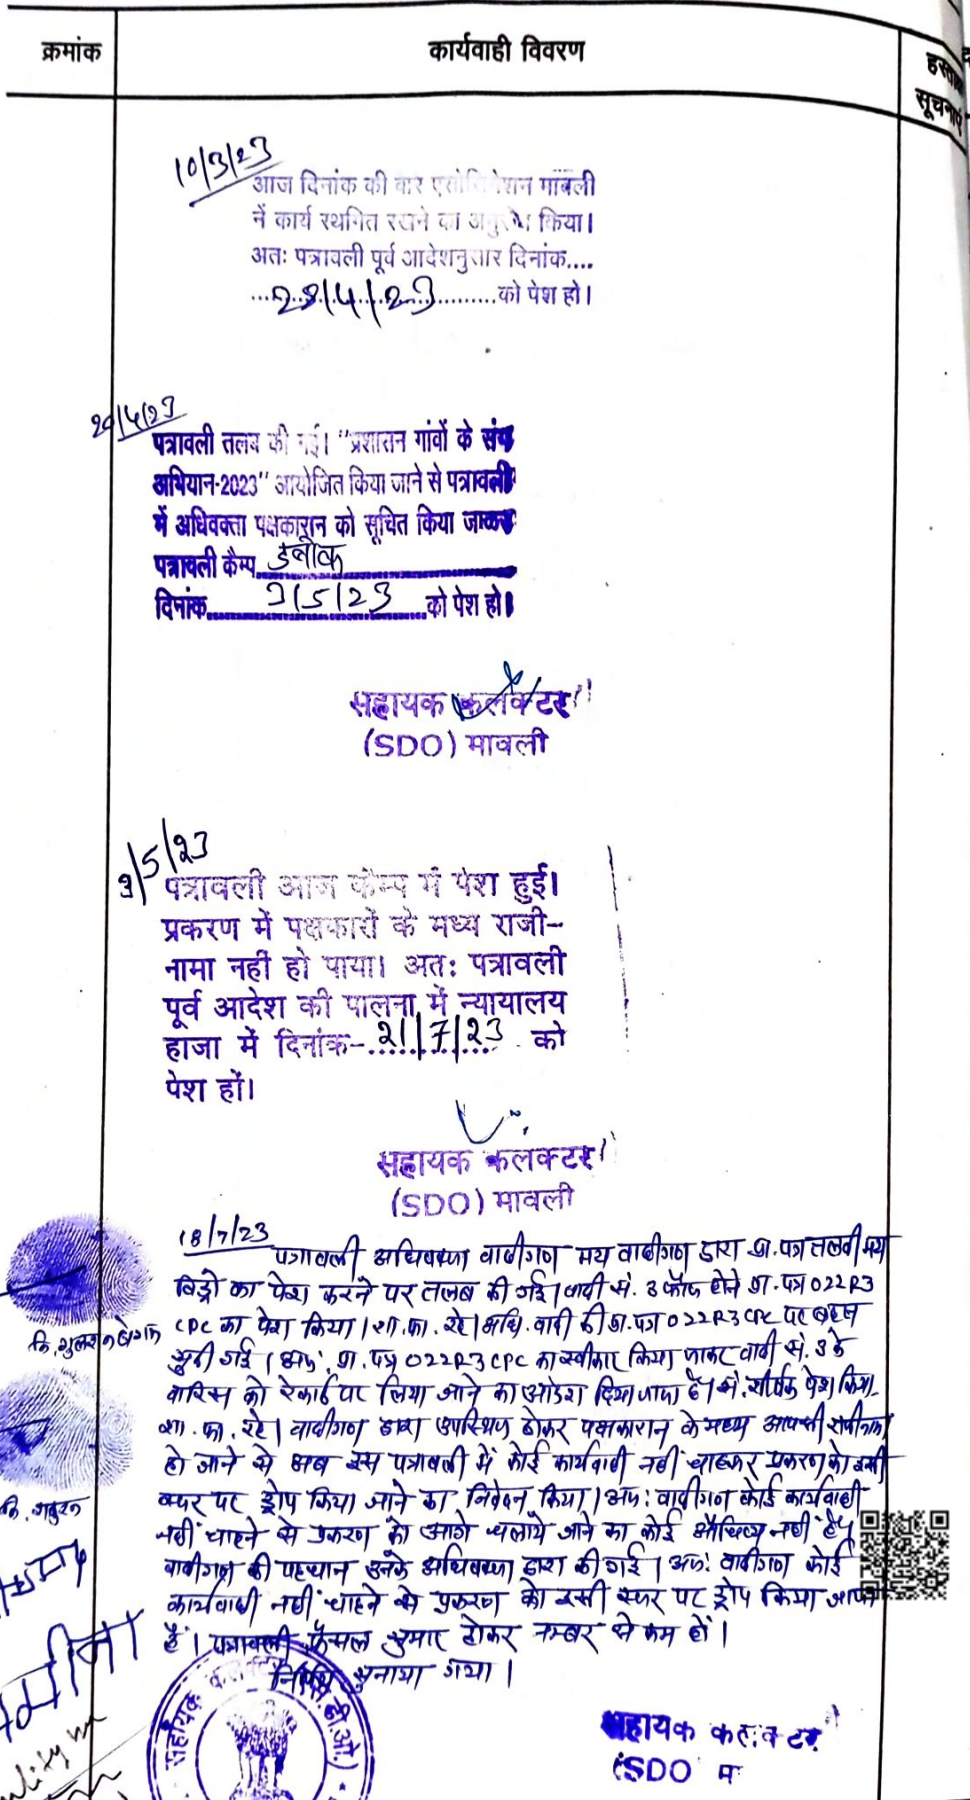 क्रमांक
कार्यवाही विवरण
सूचनार्थ
10/3/23
आज दिनांक की बार एसोसियेशन मावली
नें कार्य स्थगित रखने का अनुरोध किया।
अतः पत्रावली पूर्व आदेशनुसार दिनांक....
...28/4/23..........को पेश हो।
20/4/23
पत्रावली तलब की गई। "प्रशासन गांवों के संग
अभियान-2023" आयोजित किया जाने से पत्रावली
में अधिवक्ता पक्षकारान को सूचित किया जाकर
पत्रावली कैम्प डबोक
दिनांक 3/5/23 को पेश हो।
सहायक कलेक्टर
(SDO) मावली
3/5/23
पत्रावली आज कैम्प में पेश हुई।
प्रकरण में पक्षकारों के मध्य राजी-
नामा नहीं हो पाया। अतः पत्रावली
पूर्व आदेश की पालना में न्यायालय
हाजा में दिनांक-21/7/23 को
पेश हों।
सहायक कलेक्टर
(SDO) मावली
18/7/23
पत्रावली अधिवक्ता वादीगण मय वादीगण द्वारा प्रा.पत्र तलबी मय
विड्रो का पेश करने पर तलब की गई। वादी सं. 3 फौत होने प्रा.पत्र O22R3
CPC का पेश किया। शा.फा. रहे। अधि. वादी की प्रा.पत्र O22R3 CPC पर बहस
सुनी गई। अतः प्रा.पत्र O22R3 CPC का स्वीकार किया जाकर वादी सं. 3 के
वारिस को रेकार्ड पर लिया जाने का आदेश दिया जाता है। सं. शीर्षक पेश किया
शा.फा. रहे। वादीगण द्वारा उपस्थित होकर पक्षकारान के मध्य आपसी राजीनामा
हो जाने से अब इस पत्रावली में कोई कार्यवाही नहीं चाहकर प्रकरण को इसी
स्तर पर ड्रोप किया जाने का निवेदन किया। अतः वादीगण कोई कार्यवाही
नहीं चाहने से प्रकरण को आगे चलाये जाने का कोई औचित्य नहीं है।
वादीगण की पहचान उनके अधिवक्ता द्वारा की गई। अतः वादीगण कोई
कार्यवाही नहीं चाहने से प्रकरण को इसी स्तर पर ड्रोप किया जाता
है। पत्रावली फैसल शुमार होकर नम्बर से कम हों।
निर्णय सुनाया गया।
सहायक कलेक्टर
(SDO